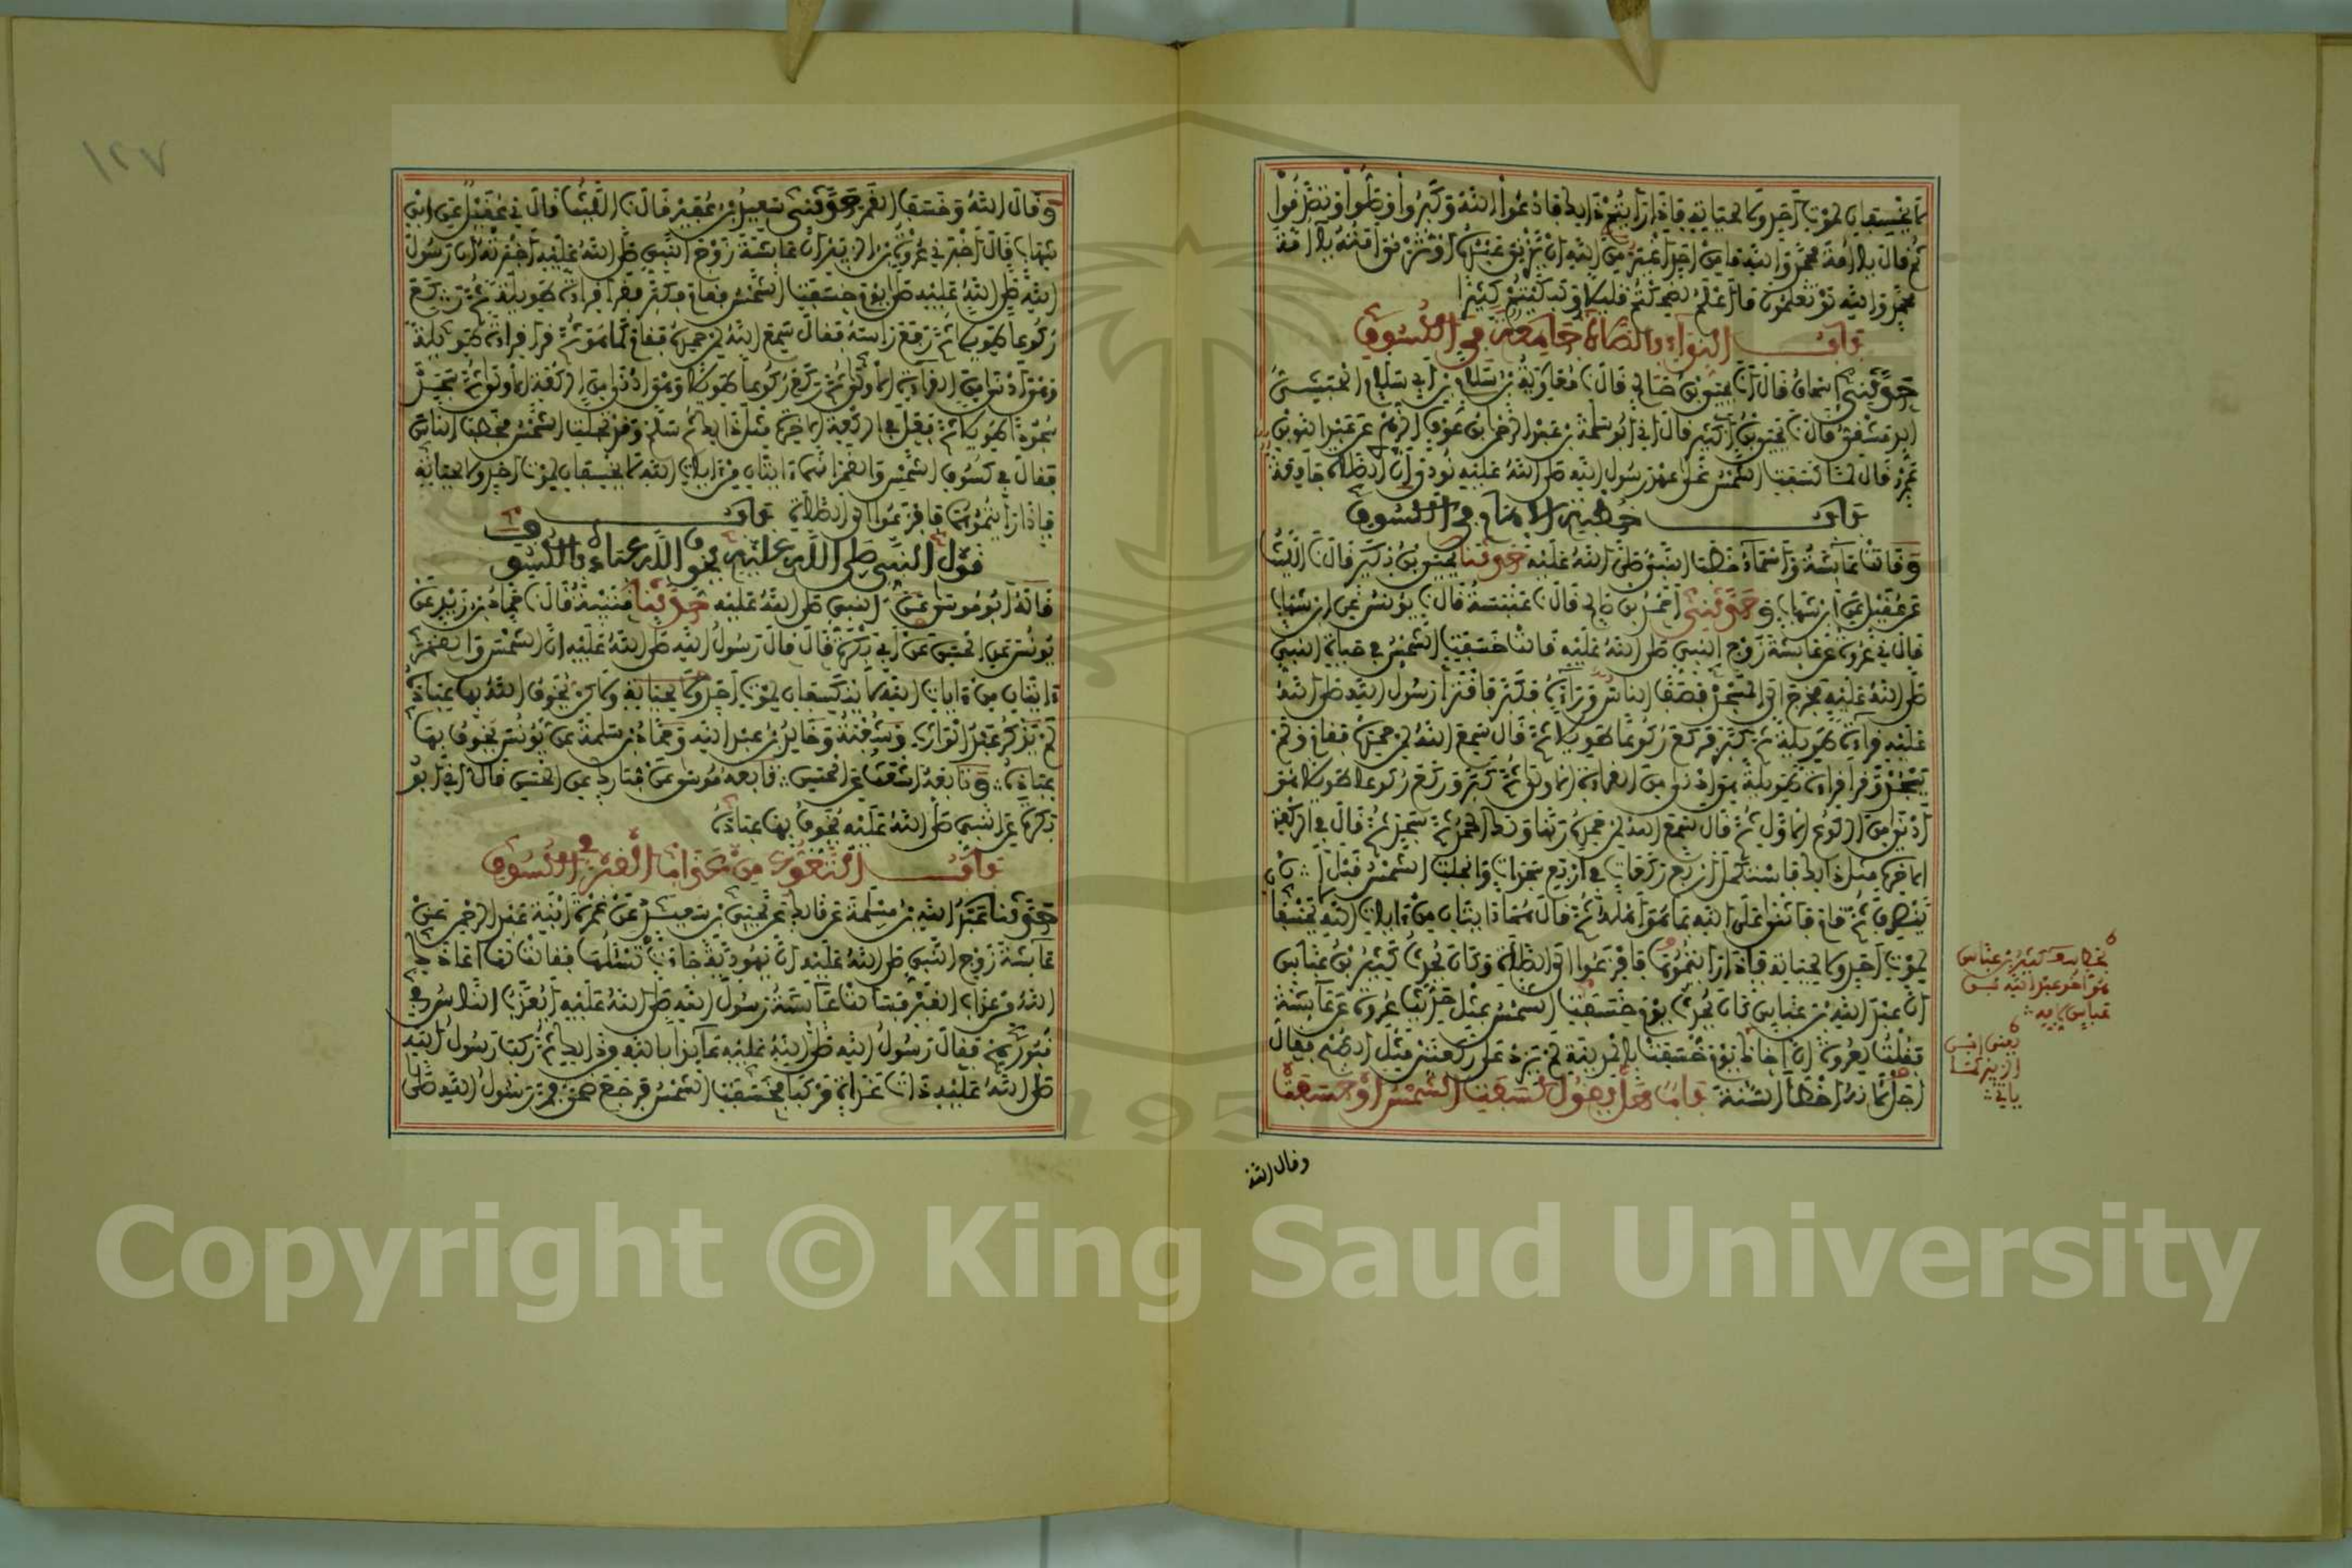 لا يخسفان لموت أحد ولا لحياته فإذا رأيتم ذلك فادعوا الله وكبروا وصلوا وتصدقوا
ثم قال يا أمة محمد والله ما من أحد أغير من الله أن يزني عبده أو تزني أمته يا أمة
محمد والله لو تعلمون ما أعلم لضحكتم قليلا ولبكيتم كثيرا
باب النداء بالصلاة جامعة في الكسوف
حدثني إسحاق قال نا يحيى بن صالح قال نا معاوية بن سلام بن أبي سلام الحبشي
الدمشقي قال نا يحيى بن أبي كثير قال أخبرني أبو سلمة بن عبد الرحمن بن عوف الزهري عن عبد الله بن
عمرو قال لما كسفت الشمس على عهد رسول الله صلى الله عليه نودي إن الصلاة جامعة
باب خطبة الإمام في الكسوف
وقالت عائشة وأسماء خطب النبي صلى الله عليه حدثنا يحيى بن بكير قال نا الليث
عن عقيل عن ابن شهاب وحدثني أحمد بن صالح قال نا عنبسة قال نا يونس عن ابن شهاب
قال ني عروة عن عائشة زوج النبي صلى الله عليه قالت خسفت الشمس في حياة النبي
صلى الله عليه فخرج إلى المسجد فصف الناس وراءه فكبر فاقترأ رسول الله صلى الله
عليه قراءة طويلة ثم كبر فركع ركوعا طويلا ثم قال سمع الله لمن حمده فقام ولم
يسجد وقرأ قراءة طويلة هي أدنى من القراءة الأولى ثم كبر وركع ركوعا طويلا هو
أدنى من الركوع الأول ثم قال سمع الله لمن حمده ربنا ولك الحمد ثم سجد ثم قال في الركعة
الآخرة مثل ذلك فاستكمل أربع ركعات في أربع سجدات وانجلت الشمس قبل أن
ينصرف ثم قام فأثنى على الله بما هو أهله ثم قال هما آيتان من آيات الله لا يخسفان
لموت أحد ولا لحياته فإذا رأيتموها فافزعوا إلى الصلاة وكان يحدث كثير بن عباس
أن عبد الله بن عباس كان يحدث يوم خسفت الشمس بمثل حديث عروة عن عائشة
فقلت لعروة إن أخاك يوم خسفت بالمدينة لم يزد على ركعتين مثل الصبح فقال
أجل لأنه أخطأ السنة باب هل يقول كسفت الشمس أو خسفت
كثير بن عباس
هو أخو عبد الله بن
عباس
يعني ابن
الزبير كما
يأتي
وقال الله
١٢٧
وقال الله وخسف القمر حدثني سعيد بن عفير قال نا الليث قال ني عقيل عن ابن
شهاب قال أخبرني عروة بن الزبير أن عائشة زوج النبي صلى الله عليه أخبرته أن رسول
الله صلى الله عليه صلى يوم خسفت الشمس فقام فكبر فقرأ قراءة طويلة ثم ركع
ركوعا طويلا ثم رفع رأسه فقال سمع الله لمن حمده فقام كما هو ثم قرأ قراءة طويلة
وهي أدنى من القراءة الأولى ثم ركع ركوعا طويلا وهي أدنى من الركعة الأولى ثم سجد
سجودا طويلا ثم فعل في الركعة الآخرة مثل ذلك ثم سلم وقد تجلت الشمس فخطب الناس
فقال في كسوف الشمس والقمر إنهما آيتان من آيات الله لا يخسفان لموت أحد ولا لحياته
فإذا رأيتموها فافزعوا إلى الصلاة باب
قول النبي صلى الله عليه يخوف الله عباده بالكسوف
قاله أبو موسى عن النبي صلى الله عليه حدثنا قتيبة قال نا حماد بن زيد عن
يونس عن الحسن عن أبي بكرة قال قال رسول الله صلى الله عليه إن الشمس والقمر
آيتان من آيات الله لا ينكسفان لموت أحد ولا لحياته ولكن يخوف الله بها عباده
لم يذكر عبد الوارث وشعبة وخالد بن عبد الله وحماد بن سلمة عن يونس يخوف بها
عباده وتابعه أشعث عن الحسن تابعه موسى عن مبارك عن الحسن قال أخبرني أبو
بكرة عن النبي صلى الله عليه يخوف بها عباده
باب التعوذ من عذاب القبر في الكسوف
حدثنا عبد الله بن مسلمة عن مالك عن يحيى بن سعيد عن عمرة ابنة عبد الرحمن عن
عائشة زوج النبي صلى الله عليه أن يهودية جاءت تسئلها فقالت لها أعاذك
الله من عذاب القبر فسألت عائشة رسول الله صلى الله عليه أيعذب الناس في
قبورهم فقال رسول الله صلى الله عليه عائذا بالله من ذلك ثم ركب رسول الله
صلى الله عليه ذات غداة مركبا فخسفت الشمس فرجع ضحى فمر رسول الله صلى
Copyright © King Saud University
1957